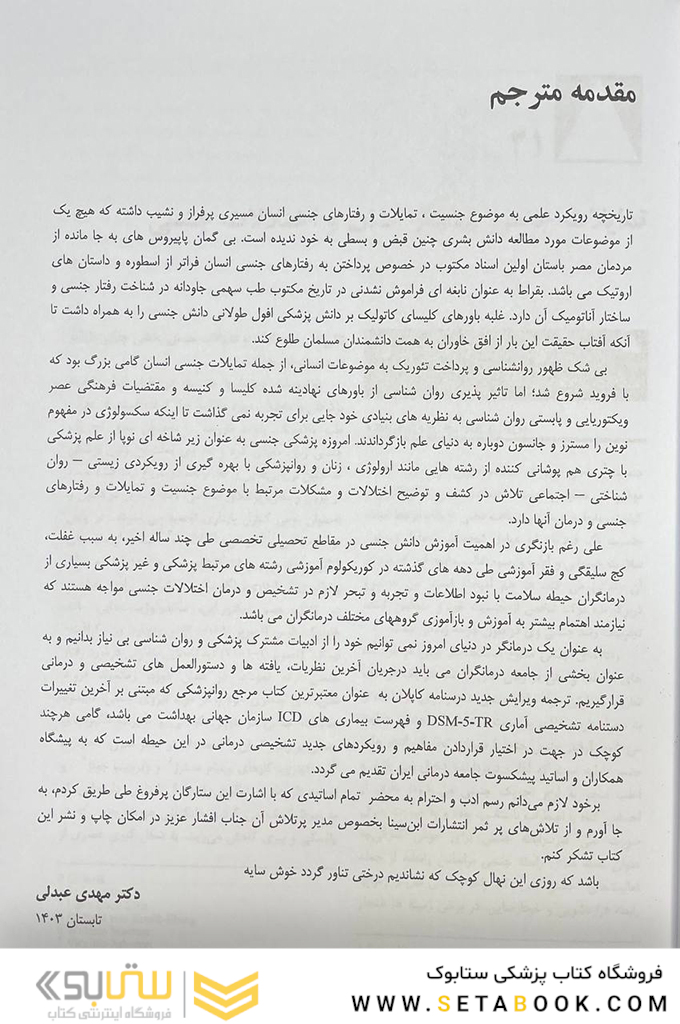 مقدمه مترجم
تاریخچه رویکرد علمی به موضوع جنسیت ، تمایلات و رفتارهای جنسی انسان مسیری پرفراز و نشیب داشته که هیچ یک
از موضوعات مورد مطالعه دانش بشری چنین قبض و بسطی به خود ندیده است. بی گمان پاپیروس های به جا مانده از
مردمان مصر باستان اولین اسناد مکتوب در خصوص پرداختن به رفتارهای جنسی انسان فراتر از اسطوره و داستان های
اروتیک می باشد. بقراط به عنوان نابغه ای فراموش نشدنی در تاریخ مکتوب طب سهمی جاودانه در شناخت رفتار جنسی و
ساختار آناتومیک آن دارد. غلبه باورهای کلیسای کاتولیک بر دانش پزشکی افول طولانی دانش جنسی را به همراه داشت تا
آنکه آفتاب حقیقت این بار از افق خاوران به همت دانشمندان مسلمان طلوع کند.
بی شک ظهور روانشناسی و پرداخت تئوریک به موضوعات انسانی، از جمله تمایلات جنسی انسان گامی بزرگ بود که
با فروید شروع شد؛ اما تاثیر پذیری روان شناسی از باورهای نهادینه شده کلیسا و کنیسه و مقتضیات فرهنگی عصر
ویکتوریایی و پابستی روان شناسی به نظریه های بنیادی خود جایی برای تجربه نمی گذاشت تا اینکه سکسولوژی در مفهوم
نوین را مسترز و جانسون دوباره به دنیای علم بازگرداندند. امروزه پزشکی جنسی به عنوان زیر شاخه ای نوپا از علم پزشکی
با چتری هم پوشانی کننده از رشته هایی مانند ارولوژی ، زنان و روانپزشکی با بهره گیری از رویکردی زیستی – روان
شناختی – اجتماعی تلاش در کشف و توضیح اختلالات و مشکلات مرتبط با موضوع جنسیت و تمایلات و رفتارهای
جنسی و درمان آنها دارد.
علی رغم بازنگری در اهمیت آموزش دانش جنسی در مقاطع تحصیلی تخصصی طی چند ساله اخیر، به سبب غفلت،
کج سلیقگی و فقر آموزشی طی دهه های گذشته در کوریکولوم آموزشی رشته های مرتبط پزشکی و غیر پزشکی بسیاری از
درمانگران حیطه سلامت با نبود اطلاعات و تجربه و تبحر لازم در تشخیص و درمان اختلالات جنسی مواجه هستند که
نیازمند اهتمام بیشتر به آموزش و بازآموزی گروههای مختلف درمانگران می باشد.
به عنوان یک درمانگر در دنیای امروز نمی توانیم خود را از ادبیات مشترک پزشکی و روان شناسی بی نیاز بدانیم و به
عنوان بخشی از جامعه درمانگران می باید درجریان آخرین نظریات، یافته ها و دستورالعمل های تشخیصی و درمانی
قرارگیریم. ترجمه ویرایش جدید درسنامه کاپلان به عنوان معتبرترین کتاب مرجع روانپزشکی که مبتنی بر آخرین تغییرات
دستنامه تشخیصی آماری DSM-5-TR و فهرست بیماری های ICD سازمان جهانی بهداشت می باشد، گامی هرچند
کوچک در جهت در اختیار قراردادن مفاهیم و رویکردهای جدید تشخیصی درمانی در این حیطه است که به پیشگاه
همکاران و اساتید پیشکسوت جامعه درمانی ایران تقدیم می گردد.
برخود لازم می‌دانم رسم ادب و احترام به محضر تمام اساتیدی که با اشارت این ستارگان پرفروغ طی طریق کردم، به
جا آورم و از تلاش‌های پر ثمر انتشارات ابن‌سینا بخصوص مدیر پرتلاش آن جناب افشار عزیز در امکان چاپ و نشر این
کتاب تشکر کنم.
باشد که روزی این نهال کوچک که نشاندیم درختی تناور گردد خوش سایه
دکتر مهدی عبدلی
تابستان ۱۴۰۳
فروشگاه کتاب پزشکی ستابوک
WWW.SETABOOK.COM
ستابوک
فروشگاه اینترنتی کتاب